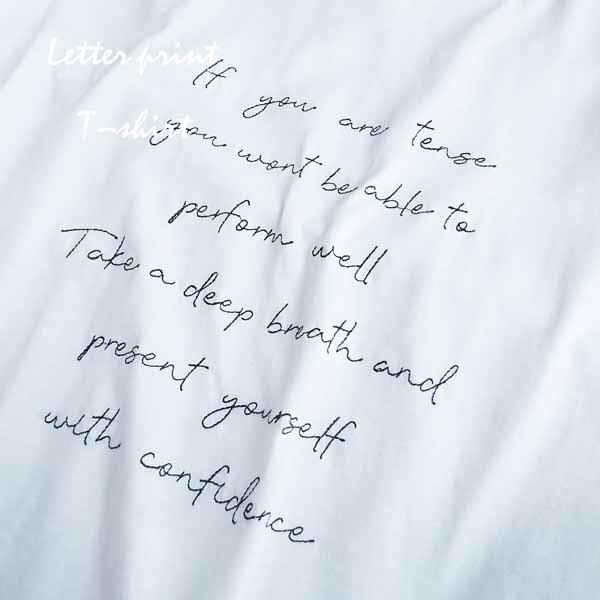 Letter print
T-shirt
If you are tense
you wont be able to
perform well
Take a deep breath and
present yourself
with confidence